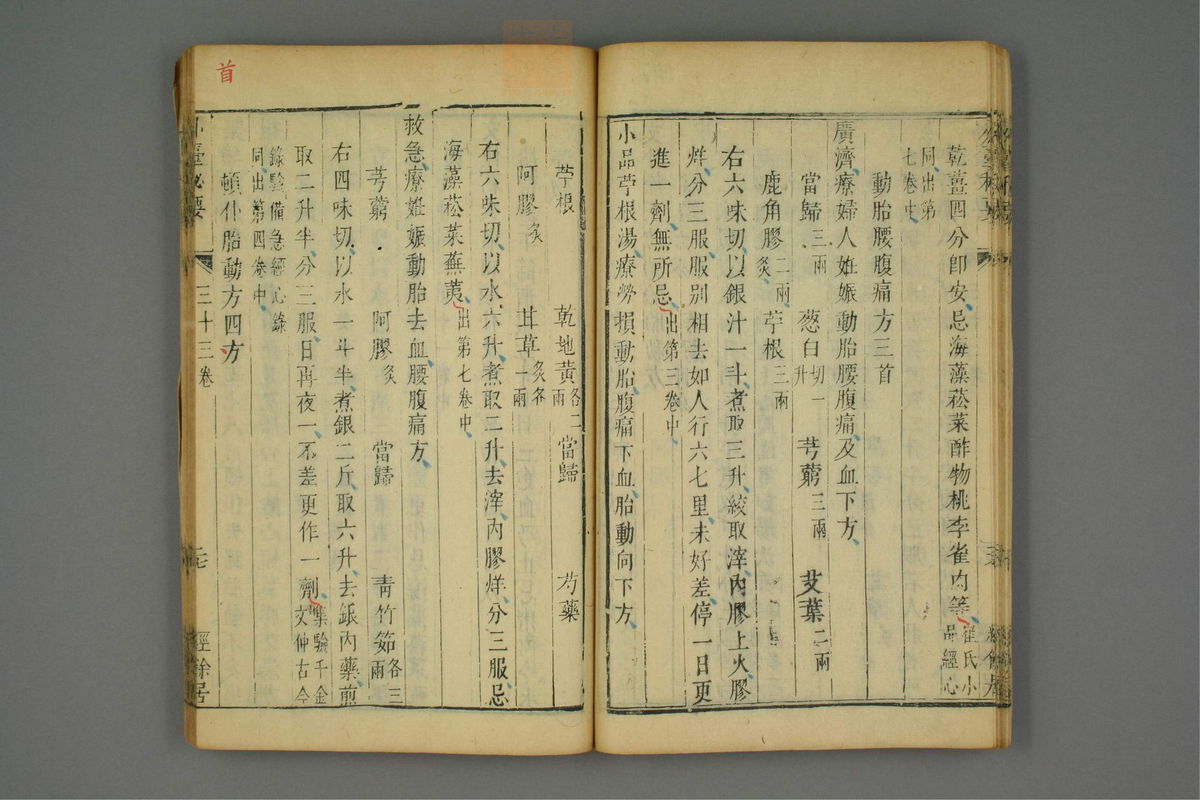 乾薑四分即安忌海藻菘菜酢物桃李雀肉等崔氏小品經心
同出第七卷中
動胎腰腹痛方三首
廣濟療婦人姙娠動胎腰腹痛及血下方
當歸三兩 葱白切一升 芎藭三兩 艾葉二兩
鹿角膠二兩炙 苧根三兩
右六味切以銀汁一斗煮取三升絞取滓內膠上火膠
烊分三服服别相去如人行六七里未好差停一日更
進一劑無所忌出第三卷中
小品苧根湯療勞損動胎腹痛下血胎動向下方
苧根 乾地黃各二兩 當歸 芍藥
阿膠炙 甘草炙各一兩
右六味切以水六升煮取二升去滓內膠烊分三服忌
海藻菘菜蕪荑出第七卷中
救急療姙娠動胎去血腰腹痛方
芎藭 阿膠炙 當歸 青竹茹各三兩
右四味切以水一斗半煮銀二斤取六升去銀內藥煎
取二升半分三服日再夜一不差更作一劑集驗千金文仲古今
錄驗備急經心錄同出第四卷中
頓仆胎動方四方
外臺祕要 三十三卷 二七 經餘居
首